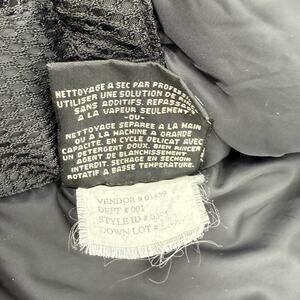 NETTOYAGE A SEC PAR PROFESS
UTILISER UNE SOLUTION DE
SANS ADDITIFS. REPASSAGE
-OU-
NETTOYAGE SEPAREE A LA MAIN
OU A LA MACHINE A GRANDE
CAPACITE. EN CYCLE DELICAT AVEC
UN DETERGENT DOUX. BIEN RINCER
AGENT DE BLANCHISSEMENT
INTERDIT. SECHAGE EN SECHOIR
ROTATIF A BASSE TEMPERATURE.
VENDOR # 01439
DEPT # 001
STYLE ID #
DOWN LOT #